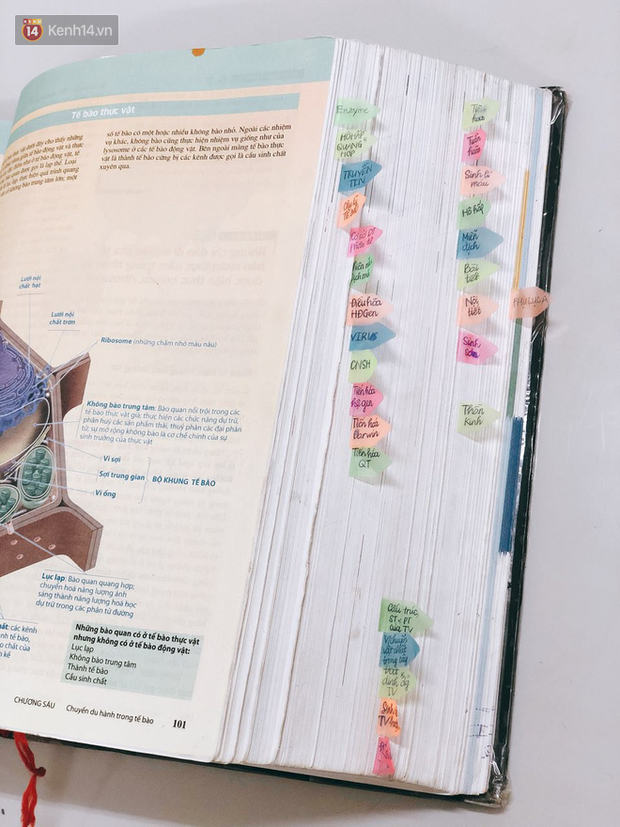 14 Kenh14.vn
Tế bào thực vật
số tế bào có một hoặc nhiều không bào nhỏ. Ngoài các nhiệm
vụ khác, không bào cũng thực hiện nhiệm vụ giống như của
lysosome ở các tế bào động vật. Bên ngoài màng tế bào thực
vật là thành tế bào cứng bị các kênh được gọi là cầu sinh chất
xuyên qua.
Lưới nội
chất hạt
Lưới nội
chất trơn
Ribosome (những chấm nhỏ màu nâu)
Không bào trung tâm: Bào quan nổi trội trong các
tế bào thực vật già; thực hiện các chức năng dự trữ,
phân huỷ các sản phẩm thải, thuỷ phân các đại phân
tử; sự mở rộng không bào là cơ chế chính của sự
sinh trưởng của thực vật
Vi sợi
Sợi trung gian
BỘ KHUNG TẾ BÀO
Vi ống
Lục lạp: Bào quan quang hợp;
chuyển hoá năng lượng ánh
sáng thành năng lượng hoá học
dự trữ trong các phân tử đường
Những bào quan có ở tế bào thực vật
nhưng không có ở tế bào động vật:
Lục lạp
Không bào trung tâm
Thành tế bào
Cầu sinh chất
CHƯƠNG SÁU Chuyến du hành trong tế bào 101
Enzyme
HÔ HẤP
QUANG
HỢP
TRUYỀN
TIN
Điều hòa
HĐGen
VIRUS
CNSH
Tiến hóa
hệ gen
Tiến hoá
Darwin
Tiến hóa
QT
Cấu trúc,
ST & PT
của TV
Tiêu
hoá
Tuần
hoàn
Sinh lí
máu
Hô hấp
Miễn
dịch
Bài
tiết
Nội
tiết
Sinh
sản
Thần
kinh
PHỤ LỤC A